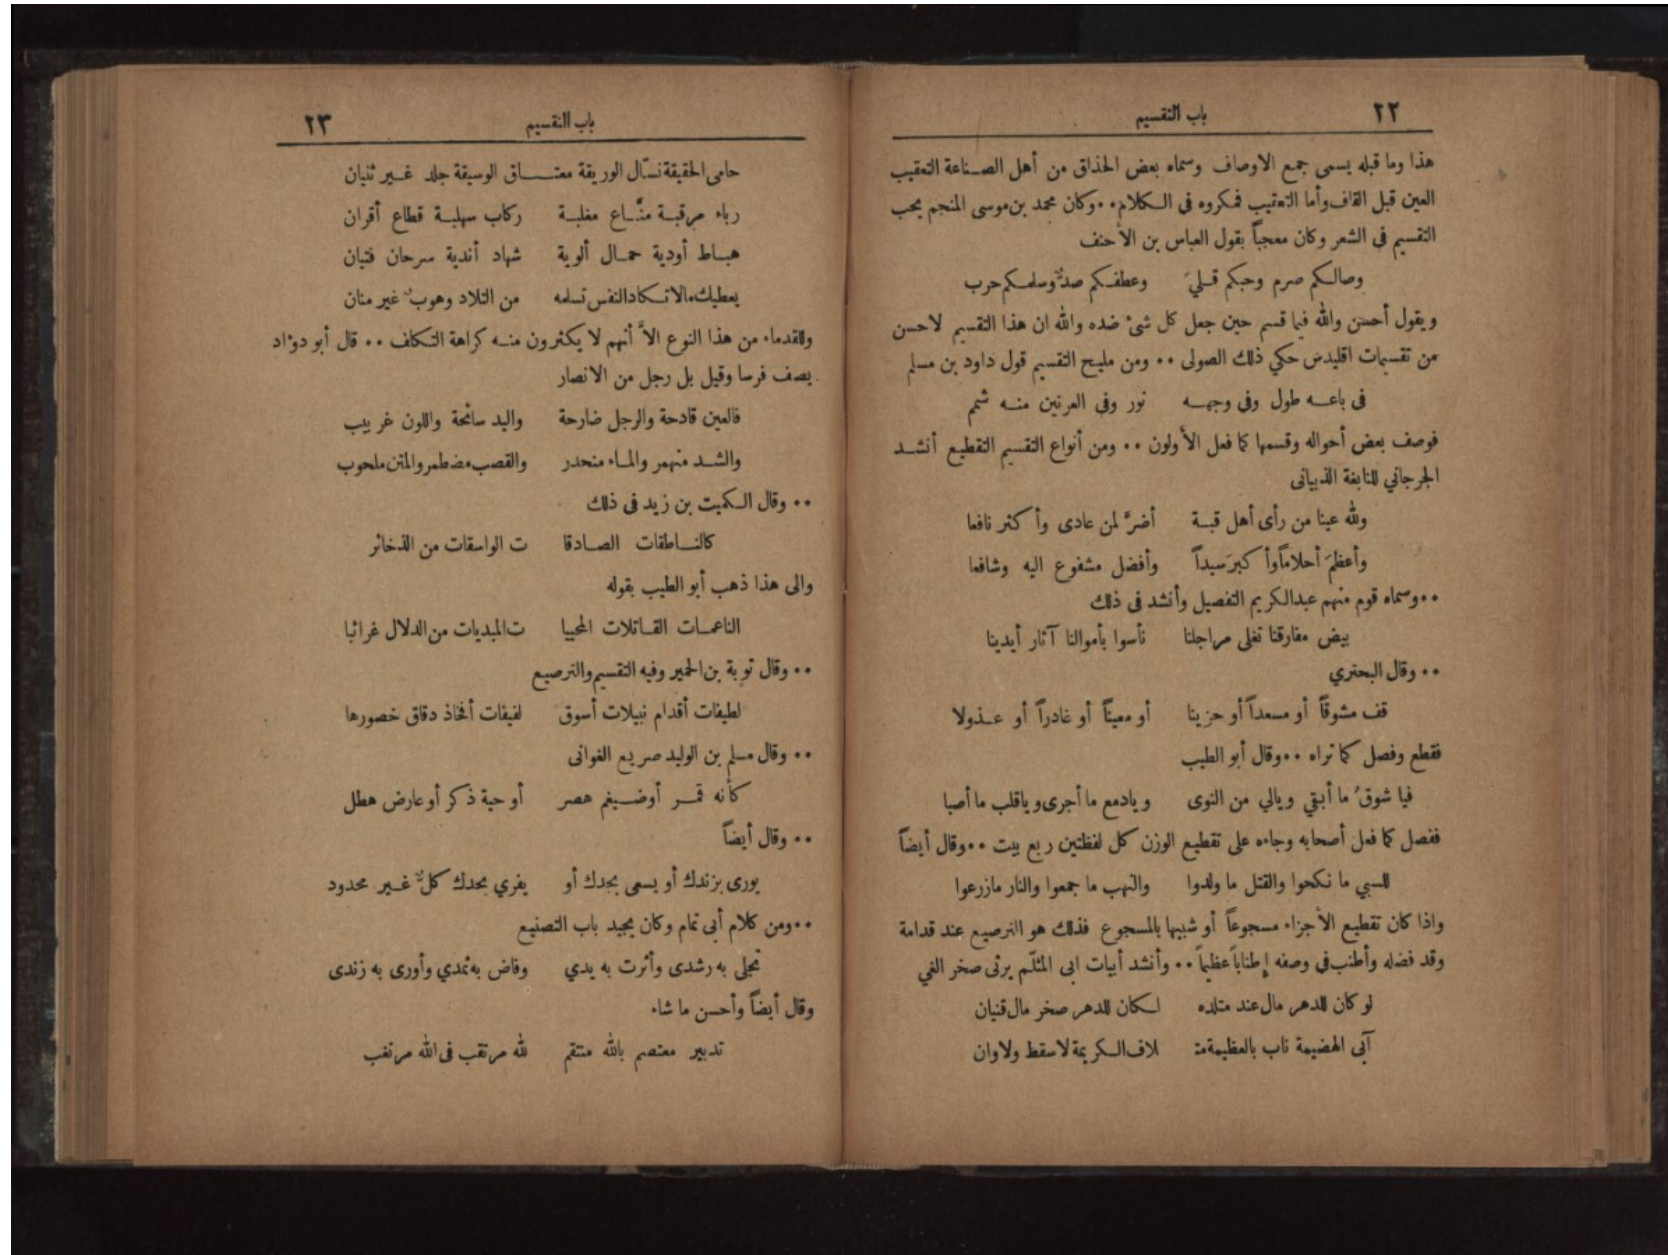 ٢٢ باب التقسيم
هذا وما قبله يسمى جمع الاوصاف وسماه بعض الحذاق من أهل الصناعة التعقيب
العين قبل القاف وأما التعقيب فمكروه فى الكلام ٠٠ وكان محمد بن موسى المنجم يحب
التقسيم فى الشعر وكان معجباً بقول العباس بن الأحنف
وصالكم صرم وحبكم قلىَ وعطفكم صدٌّ وسلمكم حرب
ويقول أحسن والله فيما قسم حين جعل كل شئ ضده والله ان هذا التقسيم لاحسن
من تقسيمات اقليدس حكي ذلك الصولى ٠٠ ومن مليح التقسيم قول داود بن مسلم
فى باعه طول وفى وجهه نور وفي العرنين منه شمم
فوصف بعض أحواله وقسمها كما فعل الأولون ٠٠ ومن أنواع التقسيم التقطيع أنشد
الجرجاني للنابغة الذبيانى
ولله عينا من رأى أهل قبة أضرَّ لمن عادى وأكثر نافعا
وأعظمَ أحلاماً وأكبرَ سيداً وأفضل مشفوع اليه وشافعا
٠٠ وسماه قوم منهم عبدالكريم التفصيل وأنشد فى ذلك
بيض مفارقنا تغلى مراجلنا نأسوا بأموالنا آثار أيدينا
٠٠ وقال البحتري
قف مشوقاً أو مسعداً أو حزينا أو معيناً أو غادراً أو عذولا
فقطع وفصل كما تراه ٠٠ وقال أبو الطيب
فيا شوقُ ما أبقي ويالي من النوى ويادمع ما أجرى وياقلب ما أصبا
ففصل كما فعل أصحابه وجاءه على تقطيع الوزن كل لفظتين ربع بيت ٠٠ وقال أيضاً
للسبي ما نكحوا والقتل ما ولدوا والنهب ما جمعوا والنار مازرعوا
واذا كان تقطيع الأجزاء مسجوعاً أو شبيها بالمسجوع فذلك هو الترصيع عند قدامة
وقد فضله وأطنب في وصفه إطناباً عظيماً ٠٠ وأنشد أبيات ابى المثلّم يرثى صخر الغي
لو كان للدهر مال عند متلده لكان للدهر صخر مال قنيان
آبى الهضيمة ناب بالعظيمة مت لاف الكريمة لاسقط ولاوان
باب التقسيم ٢٣
حامى الحقيقة نسّال الوريقة معتاق الوسيقة جلد غير ثنيان
رباء مرقبة منَّاع مغلبة ركاب سهلبة قطاع أقران
هباط أودية حمال ألوية شهاد أندية سرحان فتيان
يعطيك مالاتكاد النفس تسلمه من التلاد وهوبٌ غير منان
وللقدماء من هذا النوع الاَّ أنهم لا يكثرون منه كراهة التكلف ٠٠ قال أبو دؤاد
يصف فرسا وقيل بل رجل من الانصار
فالعين قادحة والرجل ضارحة واليد سابحة واللون غربيب
والشد منهمر والماء منحدر والقصب مضطمر والمتن ملحوب
٠٠ وقال الكميت بن زيد فى ذلك
كالناطقات الصادقا ت الواسقات من الذخائر
والى هذا ذهب أبو الطيب بقوله
الناعمات القاتلات المحييا ت المبديات من الدلال غرائبا
٠٠ وقال توبة بن الحمير وفيه التقسيم والترصيع
لطيفات أقدام نبيلات أسوق لفيفات أفخاذ دقاق خصورها
٠٠ وقال مسلم بن الوليد صريع الغوانى
كأنه قمر أو ضيغم هصر أو حية ذكر أو عارض هطل
٠٠ وقال أيضاً
يورى بزندك أو يسعى بجدك أو يفري بحدك كلٌّ غير محدود
٠٠ ومن كلام أبى تمام وكان يجيد باب التصنيع
تجلى به رشدى وأثرت به يدي وفاض به ثمدي وأورى به زندى
وقال أيضاً وأحسن ما شاء
تدبير معتصم بالله منتقم لله مرتقب فى الله مرتغب